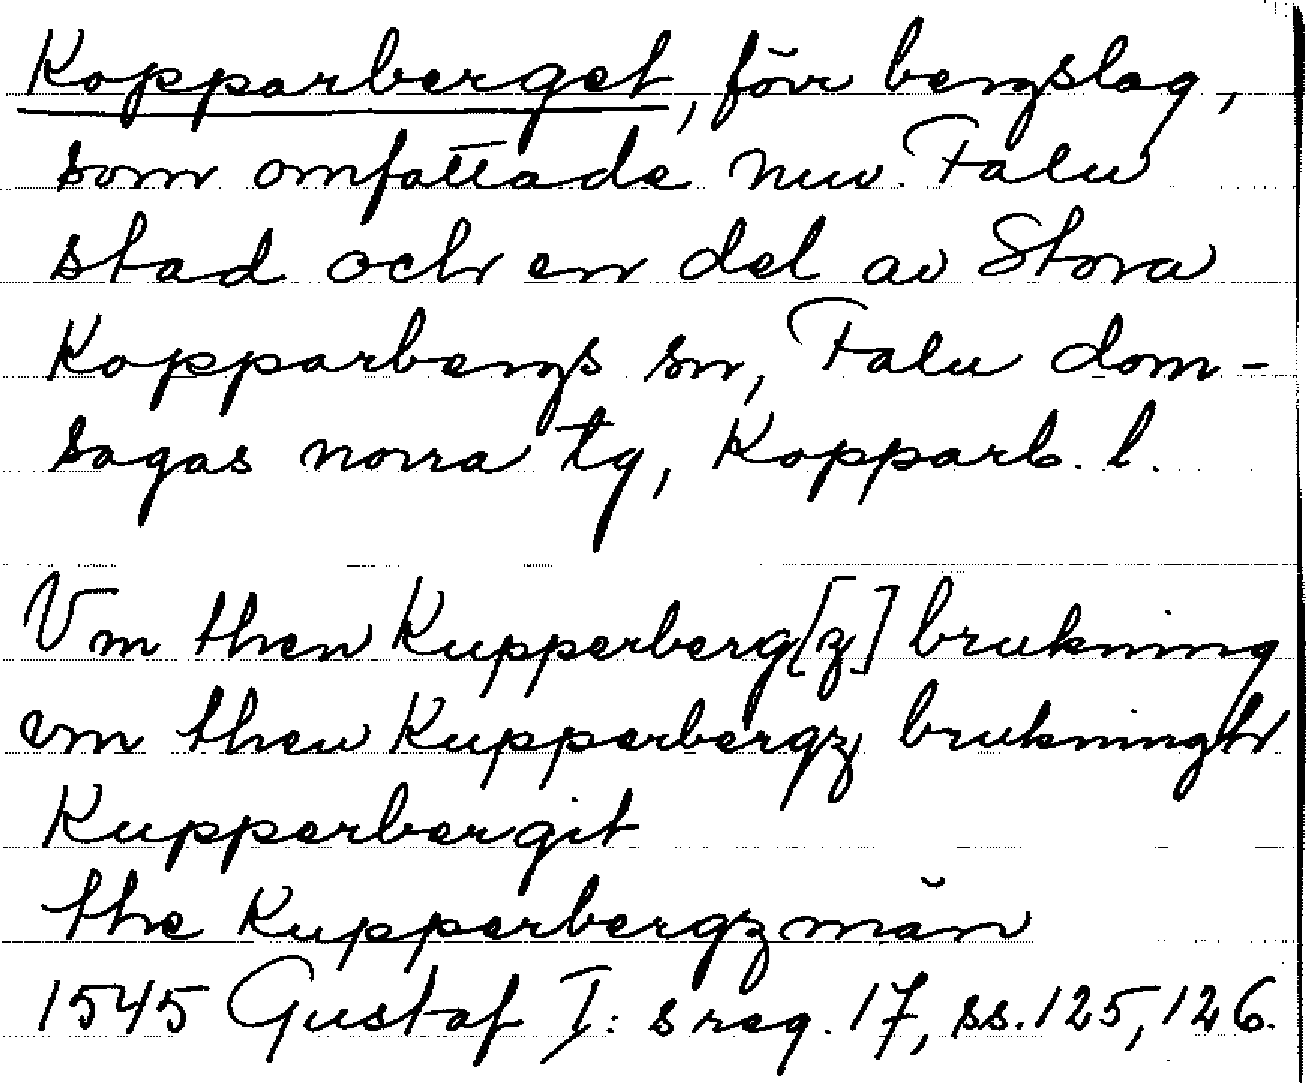 Kopparberget, förr bergslag,
som omfattade nuv. Falu
stad och en del av Stora
Kopparbergs sn, Falu dom-
sagas norra tg, Kopparb. l.
Vm then Kupperberg[z] brukning
vm then Kupperbergz brukningh
Kupperbergit
the Kupperbergzmän
1545 Gustaf I:s reg. 17, ss. 125, 126.